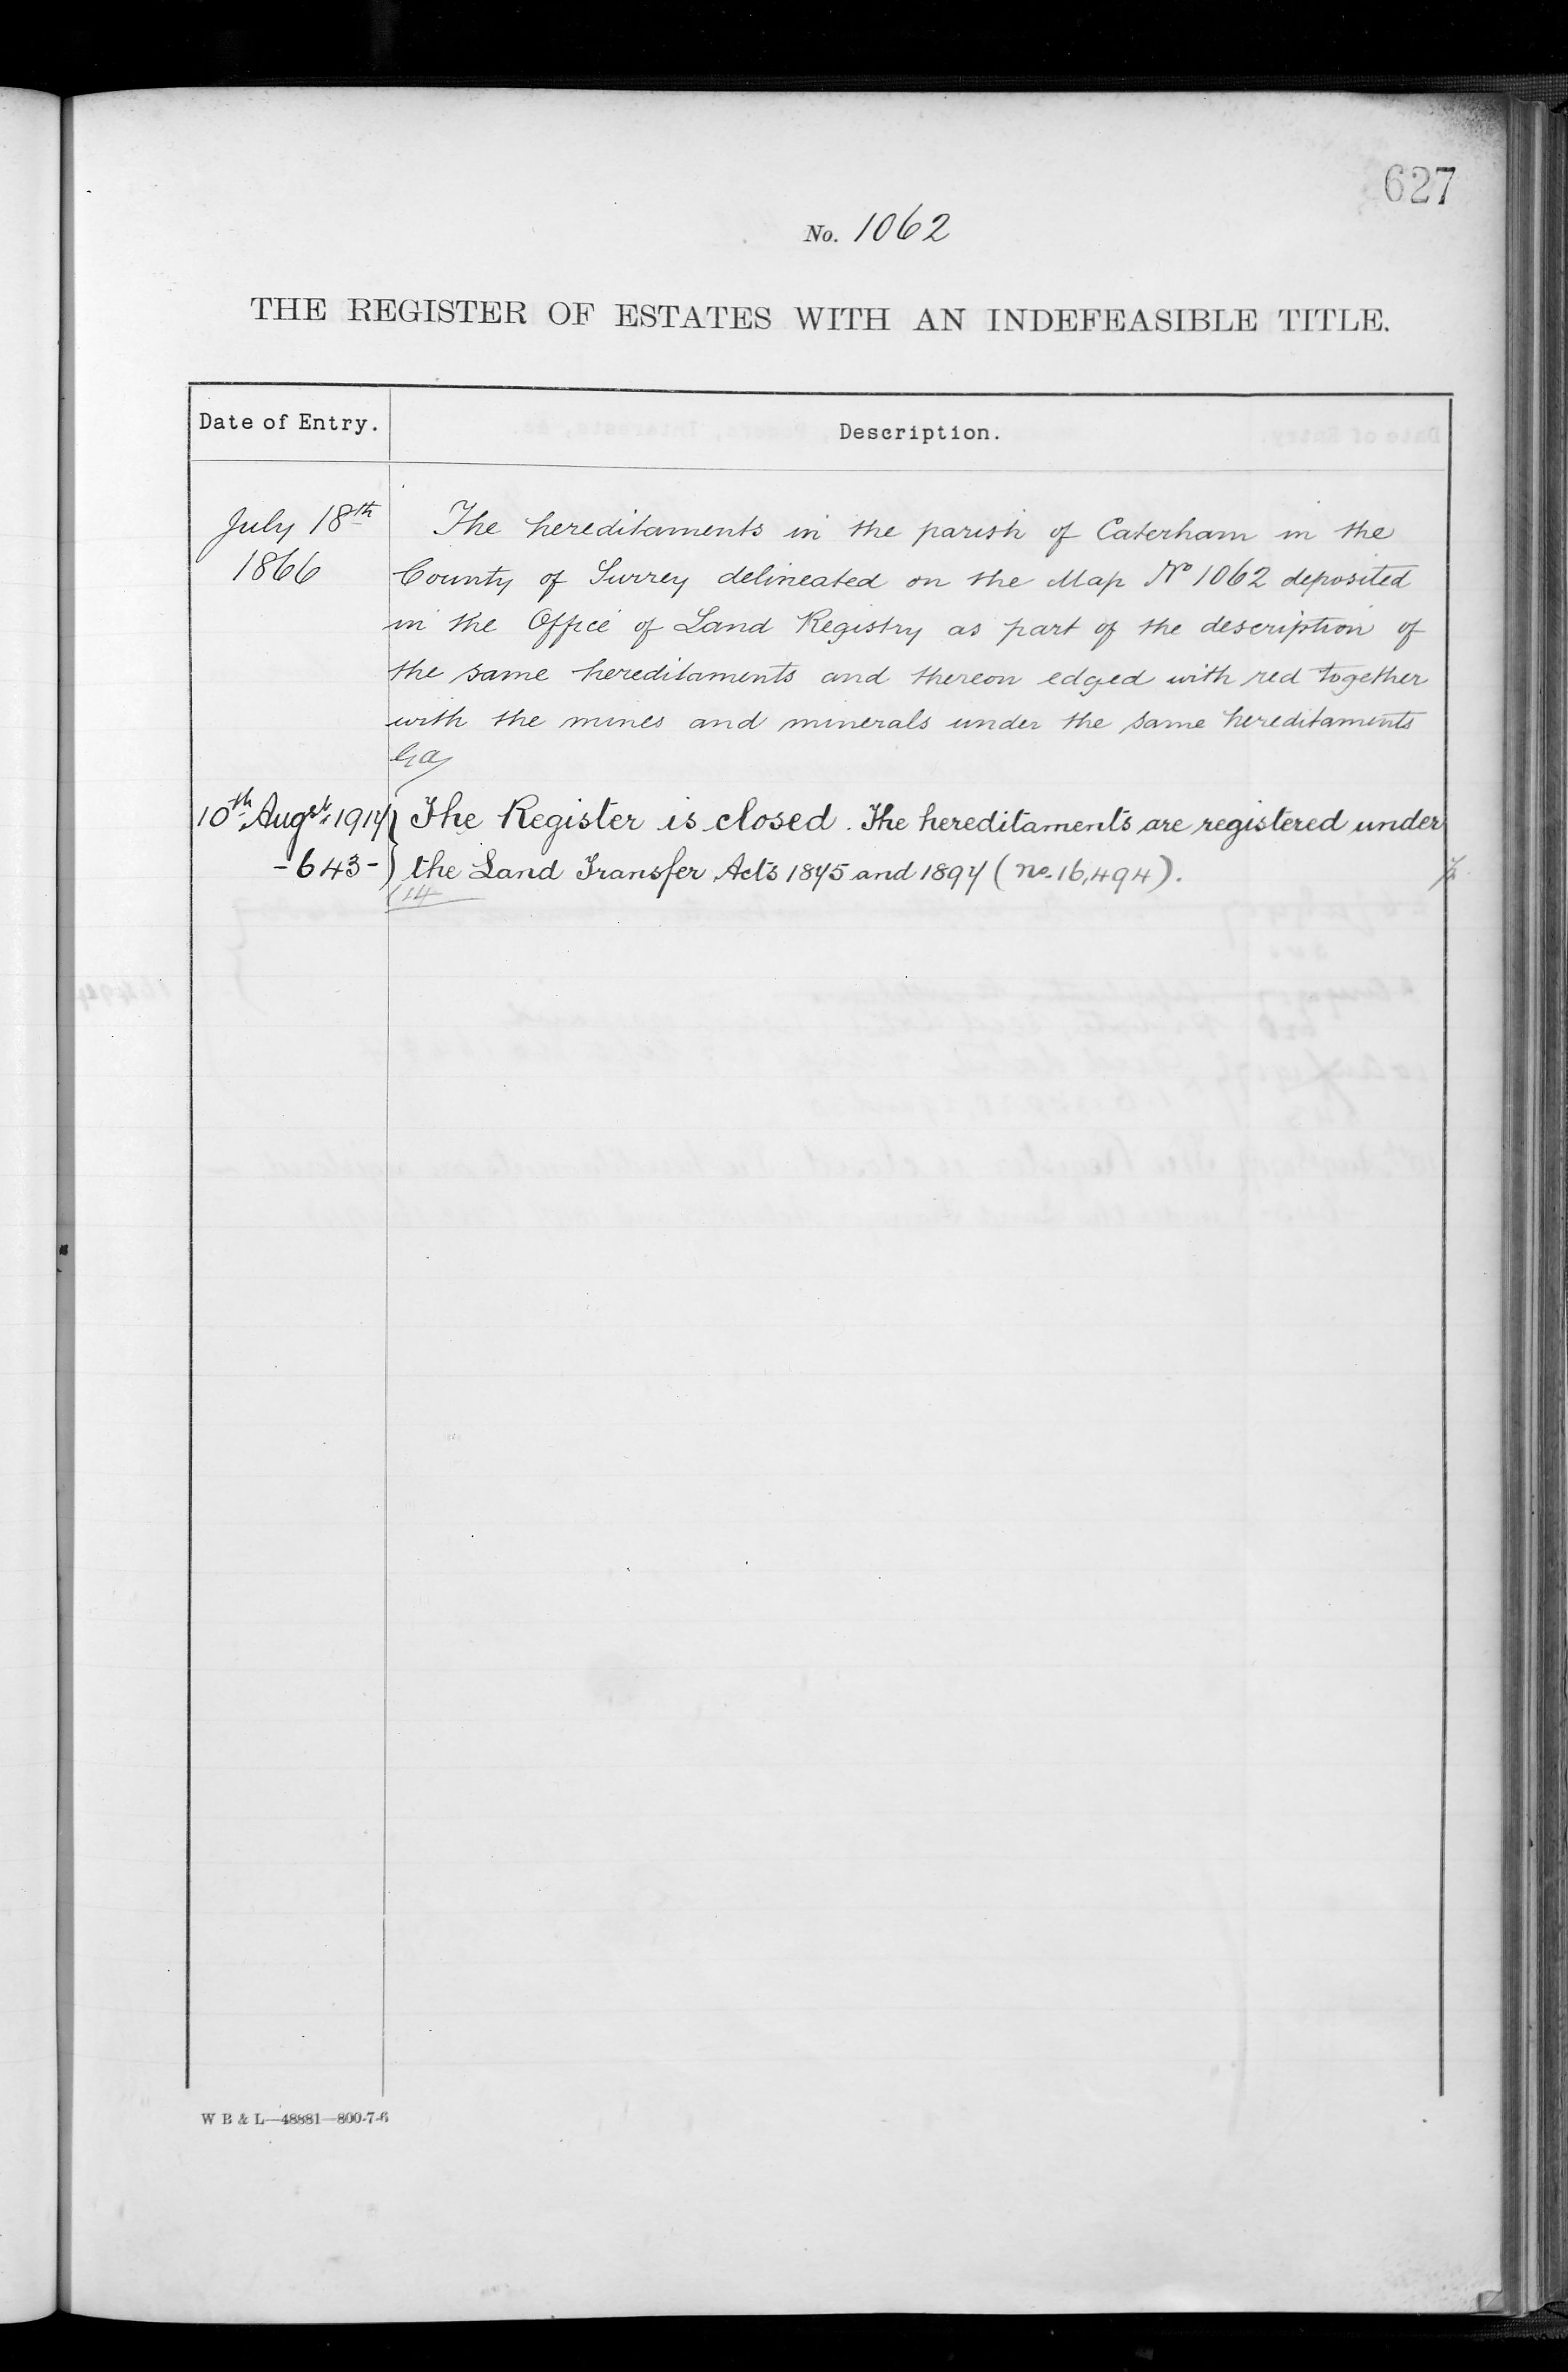 627
No. 1062
THE REGISTER OF ESTATES WITH AN INDEFEASIBLE TITLE.
Date of Entry. Description.
July 18th The hereditaments in the parish of Caterham in the
1866 County of Surrey delineated on the Map No 1062 deposited
in the Office of Land Registry as part of the description of
the same hereditaments and thereon edged with red together
with the mines and minerals under the same hereditaments
10th Augst. 1917 The Register is closed. The hereditaments are registered under
-643- the Land Transfer Acts 1875 and 1897 (no. 16,494).
14
W B & L—48881—800-7-6